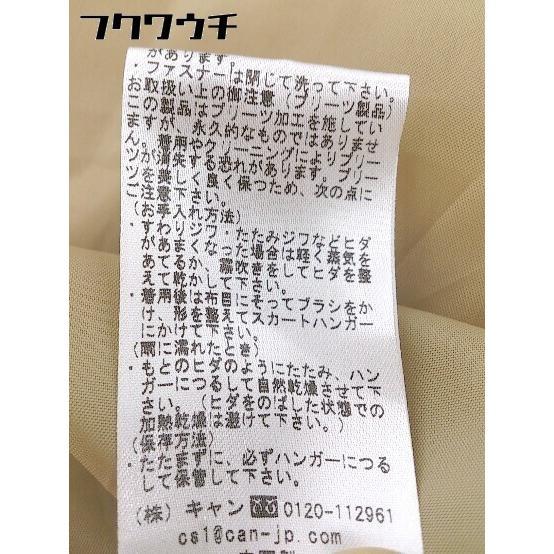 フクワウチ
があります。
・ファスナーは閉じて洗って下さい。
お取扱い上の御注意（プリーツ製品）
この製品はプリーツ加工を施してい
ますが、永久的なものではありませ
ん。着用やクリーニングによりプリー
ツが消失する恐れがあります。プリー
ツを美しく良く保つため、次の点に
ご注意下さい。
（お手入れ方法）
・すわりジワ・たたみジワなどヒダ
があまくなった場合は軽く蒸気を
あてるか、霧吹きをしてヒダを整
えて乾かして下さい。
・着用後は布目にそってブラシをか
け、形を整えてスカートハンガー
にかけて下さい。
（雨に濡れたとき）
・もとのヒダのようにたたみ、ハン
ガーにつるして自然乾燥させて下
さい。（ヒダをのばした状態での
加熱乾燥は避けて下さい。）
（保存方法）
・たたまずに、必ずハンガーにつる
して保管して下さい。
（株）キャン 0120-112961
cs1@can-jp.com